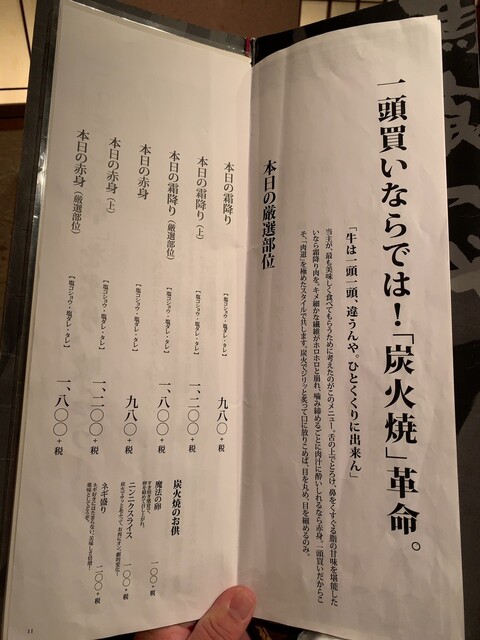 一頭買いならでは！「炭火焼」革命。
「牛は一頭一頭、違うんや。ひとくくりに出来ん」
当主が、最も美味しく食べてもらうために考えたのがこのメニュー。舌の上でとろけ、鼻をくすぐる脂の甘味を堪能した
いなら霜降り肉を。キメ細かな繊維がホロホロと崩れ、噛み締めるごとに肉汁に酔いしれるなら赤身。一頭買いだからこ
そ、「肉道」を極めたスタイルで供します。炭火でジリッと炙って口に放りこめば、目を丸め、目を細めるのみ。
本日の厳選部位
本日の霜降り 【塩コショウ・塩ダレ・タレ】 九八〇+税
本日の霜降り（上） 【塩コショウ・塩ダレ・タレ】 一、二〇〇+税
本日の霜降り（厳選部位） 【塩コショウ・塩ダレ・タレ】 一、八〇〇+税
本日の赤身 【塩コショウ・塩ダレ・タレ】 九八〇+税
本日の赤身（上） 【塩コショウ・塩ダレ・タレ】 一、二〇〇+税
本日の赤身（厳選部位） 【塩コショウ・塩ダレ・タレ】 一、八〇〇+税
炭火焼のお供
魔法の卵 一〇〇+税
ニンニクスライス 一〇〇+税
ネギ盛り 二〇〇+税
11